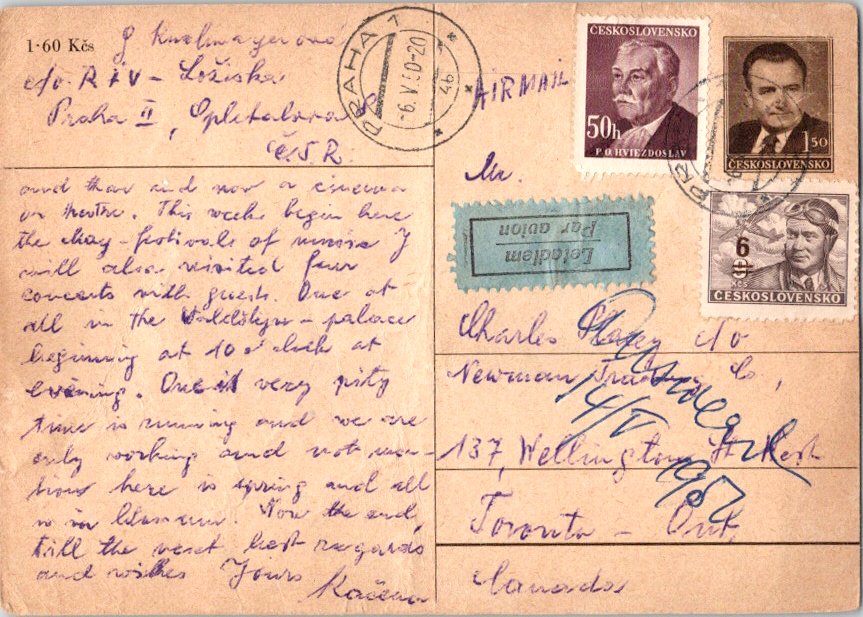 1·60 Kčs
c/o. R I V – Ložiska
Praha II, Opletalova
Č.S.R.
PRAHA 1
-6.V.50-20
4b
AIRMAIL
ČESKOSLOVENSKO
50h
P. O. HVIEZDOSLAV
1 50
ČESKOSLOVENSKO
6
Kčs
ČESKOSLOVENSKO
Letadlem
Par avion
Mr.
Charles c/o
Newman Trading Co,
137, Wellington St West
Toronto – Ont,
Canada
14/V
1950
and than and now a cinema
or theatre. This week begin here
the May-festivals of musica I
will also visited four
concerts with guests. One at
all in the – palace
beginning at 10 o'clock at
evening. One is very pity
time is running and we are
only working and not
here is spring and all
is in blossom. Now the end,
till the next best regards
and wishes Yours
Kačena